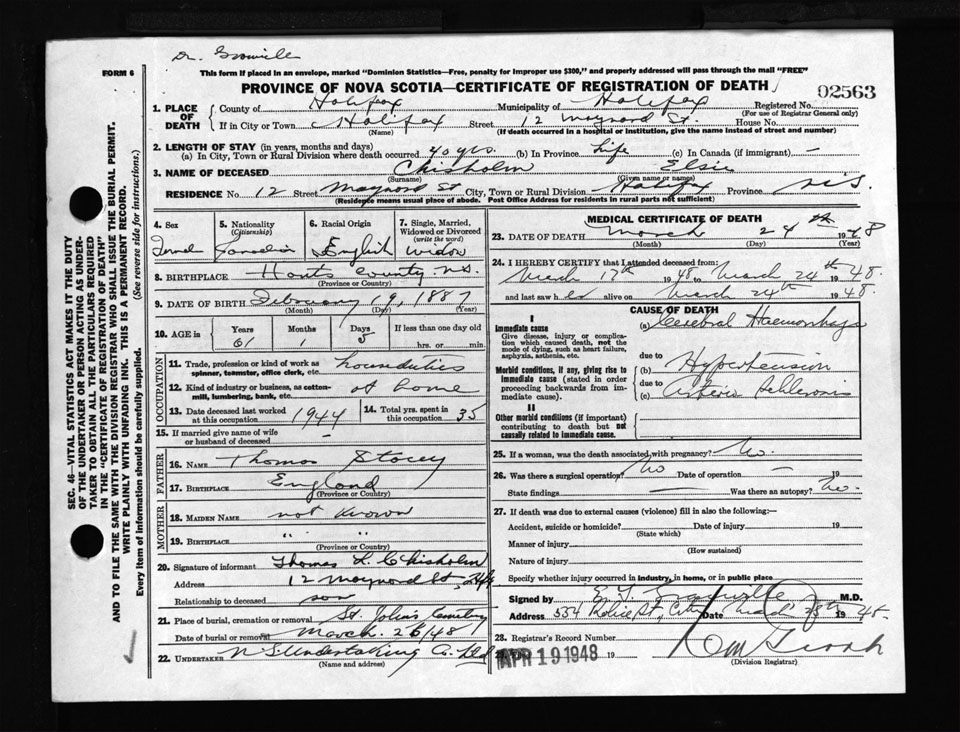 Dr. Granville
FORM 6
This form if placed in an envelope, marked "Dominion Statistics—Free, penalty for improper use $300," and properly addressed will pass through the mail "FREE"
PROVINCE OF NOVA SCOTIA—CERTIFICATE OF REGISTRATION OF DEATH
02563
1. PLACE OF DEATH
County of Halifax Municipality of Halifax Registered No.
(For use of Registrar General only)
If in City or Town Halifax Street 12 Maynard St. House No.
(Name) (If death occurred in a hospital or institution, give the name instead of street and number)
2. LENGTH OF STAY (in years, months and days)
(a) In City, Town or Rural Division where death occurred 40 yrs. (b) In Province Life (c) In Canada (if immigrant) —
3. NAME OF DECEASED Chisholm Elsie
(Surname) (Given name or names)
RESIDENCE No. 12 Street Maynard St City, Town or Rural Division Halifax Province N.S.
(Residence means usual place of abode. Post Office Address for residents in rural parts not sufficient)
4. Sex 5. Nationality (Citizenship) 6. Racial Origin 7. Single, Married, Widowed or Divorced (write the word)
Female Canadian English Widow
8. BIRTHPLACE Hants County N.S.
(Province or Country)
9. DATE OF BIRTH February 19, 1887
(Month) (Day) (Year)
10. AGE in Years Months Days If less than one day old
61 1 5 hrs. or min.
OCCUPATION
11. Trade, profession or kind of work as spinner, teamster, office clerk, etc. houseduties
12. Kind of industry or business, as cotton-mill, lumbering, bank, etc. at home
13. Date deceased last worked at this occupation 1944 14. Total yrs. spent in this occupation 35
15. If married give name of wife or husband of deceased —
FATHER
16. NAME Thomas Storey
17. BIRTHPLACE England
(Province or Country)
MOTHER
18. MAIDEN NAME not known
19. BIRTHPLACE " "
(Province or Country)
20. Signature of informant Thomas L. Chisholm
Address 12 Maynard St, Hfx
Relationship to deceased son
21. Place of burial, cremation or removal St. John's Cemetery
Date of burial or removal March. 26/48
22. UNDERTAKER N S Undertaking Co. Ltd
(Name and address)
MEDICAL CERTIFICATE OF DEATH
23. DATE OF DEATH March 24th 1948
(Month) (Day) (Year)
24. I HEREBY CERTIFY that I attended deceased from:
March 17th 1948 to March 24th 1948.
and last saw her alive on March 24th 1948.
CAUSE OF DEATH
I
Immediate cause
Give disease, injury or complication which caused death, not the mode of dying, such as heart failure, asphyxia, asthenia, etc.
(a) Cerebral Haemorrhage
due to
Morbid conditions, if any, giving rise to immediate cause (stated in order proceeding backwards from immediate cause).
(b) Hypertension
due to
(c) Arterio Sclerosis
II
Other morbid conditions (if important) contributing to death but not causally related to immediate cause.
25. If a woman, was the death associated with pregnancy? No.
26. Was there a surgical operation? No Date of operation — 19
State findings — Was there an autopsy? No.
27. If death was due to external causes (violence) fill in also the following:—
Accident, suicide or homicide? Date of injury 19
(State which)
Manner of injury
(How sustained)
Nature of injury
Specify whether injury occurred in industry, in home, or in public place
Signed by Granville M.D.
Address 554 Robie St, City Date March 28th 1948.
28. Registrar's Record Number
APR 19 1948 19
(Division Registrar)
SEC. 46—VITAL STATISTICS ACT MAKES IT THE DUTY
OF THE UNDERTAKER OR PERSON ACTING AS UNDER-
TAKER TO OBTAIN ALL THE PARTICULARS REQUIRED
IN THE "CERTIFICATE OF REGISTRATION OF DEATH" AND
TO FILE THE SAME WITH THE DIVISION REGISTRAR WHO SHALL ISSUE THE BURIAL PERMIT.
WRITE PLAINLY WITH UNFADING INK. THIS IS A PERMANENT RECORD.
Every item of information should be carefully supplied. (See reverse side for instructions.)